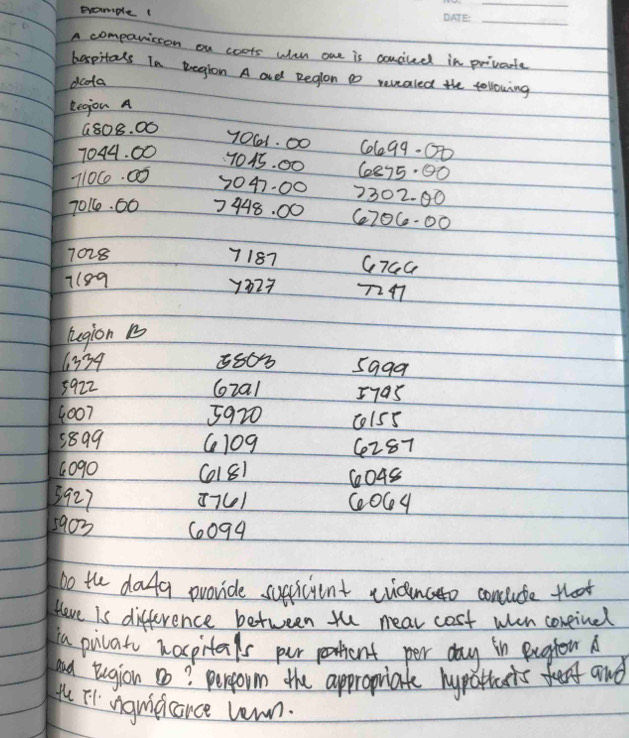 NO.
DATE:
Example 1
A comparisson on costs when one is confined in private
hospitals In Region A and Region B revealed the following
data
Region A
6808.00 7061.00 6699.00
7044.00 7045.00 6875.00
7106.00 7047.00 7302.00
7016.00 7448.00 6706.00
7028 7187 6766
7189 7327 7247
Region B
6334 5803 5999
5922 6291 5795
6007 5920 6155
5899 6109 6287
6090 6181 6048
5927 5761 6064
5903 6094
Do the data provide sufficient evidence to conclude that
there Is difference between the mean cost when confined
in private hospitals per patient per day in Region A
and Region B? perform the appropriate hypothesis test and
the significance level.